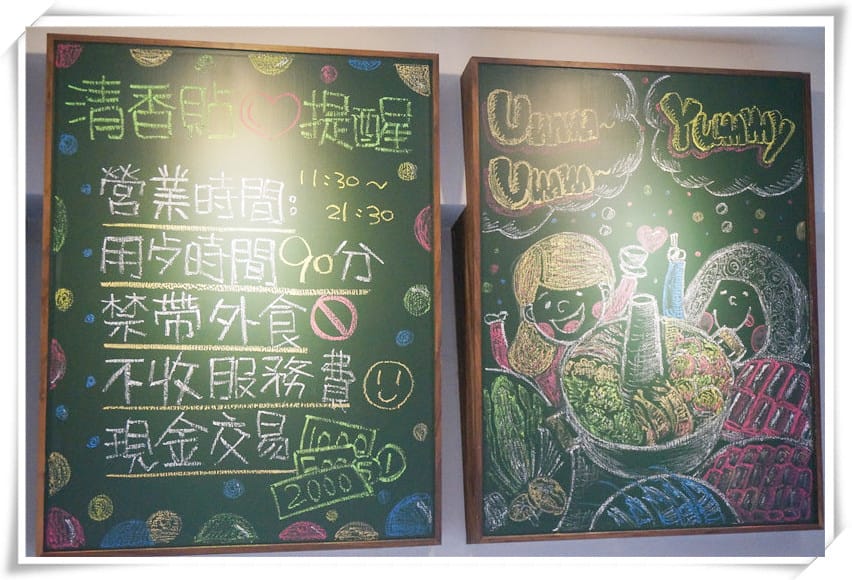 清香貼♡提醒
營業時間: 11:30~
21:30
用歺時間90分
禁帶外食
不收服務費
現金交易
2000
Umm~
Umm~
Yummy